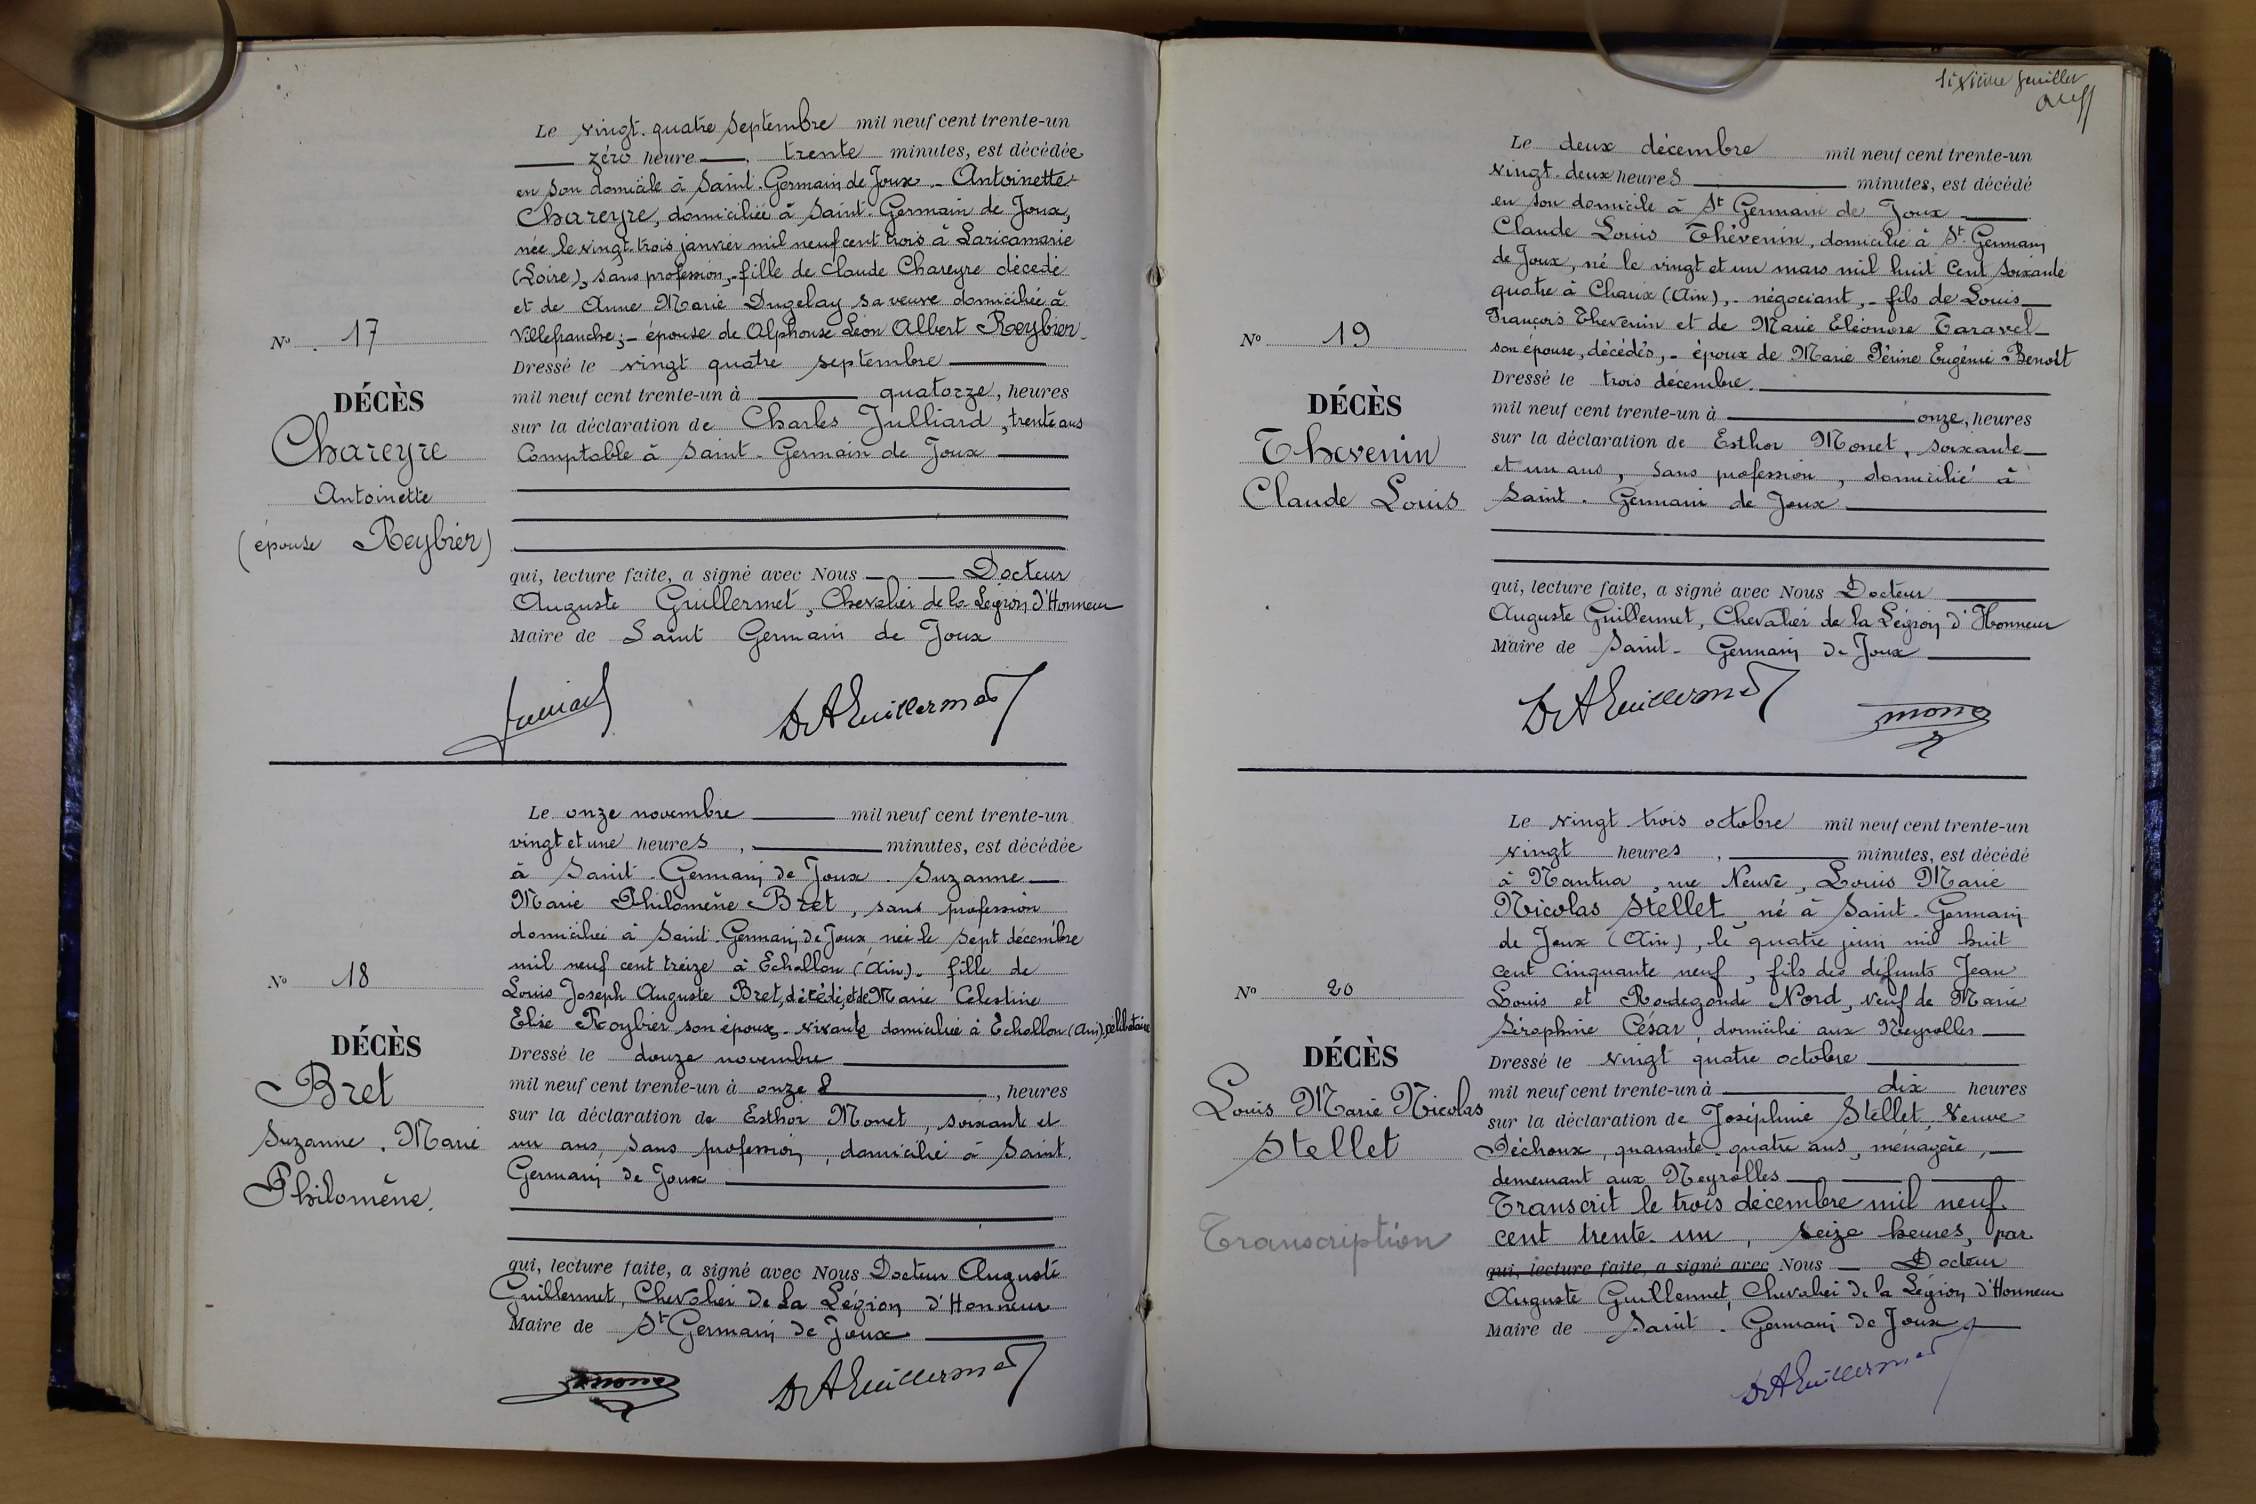 Le vingt. quatre septembre mil neuf cent trente-un
zéro heure trente minutes, est décédée
en son domicile à Saint-Germain de Joux - Antoinette
Chareyre, domiciliée à Saint-Germain de Joux,
née le vingt trois janvier mil neuf cent trois à Laricamarie
(Loire), sans profession, - fille de Claude Chareyre décédé
et de Anne Marie Dugelay sa veuve domiciliée à
Villefranche; - épouse de Alphonse Léon Albert Reybier.
Nº 17
Dressé le vingt quatre septembre
DÉCÈS
mil neuf cent trente-un à quatorze, heures
Chareyre
sur la déclaration de Charles Julliard, trente ans
Comptable à Saint-Germain de Joux
Antoinette
(épouse Reybier)
qui, lecture faite, a signé avec Nous Docteur
Auguste Guillermet, Chevalier de la Légion d'Honneur
Maire de Saint Germain de Joux
DrAGuillermet
Le onze novembre mil neuf cent trente-un
vingt et une heures, minutes, est décédée
à Saint-Germain de Joux. Suzanne
Marie Philomène Bret, sans profession
domiciliée à Saint-Germain de Joux née le sept décembre
mil neuf cent treize à Echallon (Ain). fille de
Nº 18
Louis Joseph Auguste Bret, décédé, et de Marie Célestine
Elise Reybier son épouse - vivante domiciliée à Echallon (Ain), célibataire
DÉCÈS
Dressé le douze novembre
Bret
mil neuf cent trente-un à onze, heures
Suzanne. Marie
Philomène.
sur la déclaration de Esthor Monet, soixante et
un ans, sans profession, domicilié à Saint.
Germain de Joux
qui, lecture faite, a signé avec Nous Docteur Auguste
Guillermet, Chevalier de la Légion d'Honneur
Maire de St Germain de Joux
DrAGuillermet
sixième feuillet
Le deux décembre mil neuf cent trente-un
vingt-deux heures minutes, est décédé
en son domicile à St Germain de Joux
Claude Louis Thévenin, domicilié à St. Germain
de Joux, né le vingt et un mars mil huit cent soixante
quatre à Charix (Ain), - négociant, - fils de Louis
Nº 19
François Thevenin et de Marie Eléonore Taravel
son épouse, décédés, - époux de Marie Périne Eugénie Benoît
Dressé le trois décembre.
DÉCÈS
mil neuf cent trente-un à onze, heures
Thevenin
Claude Louis
sur la déclaration de Esthor Monet, soixante
et un ans, sans profession, domicilié à
Saint-Germain de Joux
qui, lecture faite, a signé avec Nous Docteur
Auguste Guillermet, Chevalier de la Légion d'Honneur
Maire de Saint-Germain de Joux
DrAGuillermet
Le vingt trois octobre mil neuf cent trente-un
vingt heures, minutes, est décédé
à Nantua, rue Neuve, Louis Marie
Nicolas Stellet né à Saint-Germain
de Joux (Ain), le quatre juin mil huit
cent cinquante neuf, fils des défunts Jean
Nº 20
Louis et Radegonde Nord, veuf de Marie
Séraphine César, domicilié aux Neyrolles
DÉCÈS
Dressé le vingt quatre octobre
Louis Marie Nicolas
Stellet
mil neuf cent trente-un à dix heures
sur la déclaration de Joséphine Stellet, Veuve
Déchoux, quarante-quatre ans, ménagère,
demeurant aux Neyrolles
Transcription
Transcrit le trois décembre mil neuf
cent trente-un, seize heures, par
qui, lecture faite, a signé avec Nous Docteur
Auguste Guillermet, Chevalier de la Légion d'Honneur
Maire de Saint-Germain de Joux
DrAGuillermet